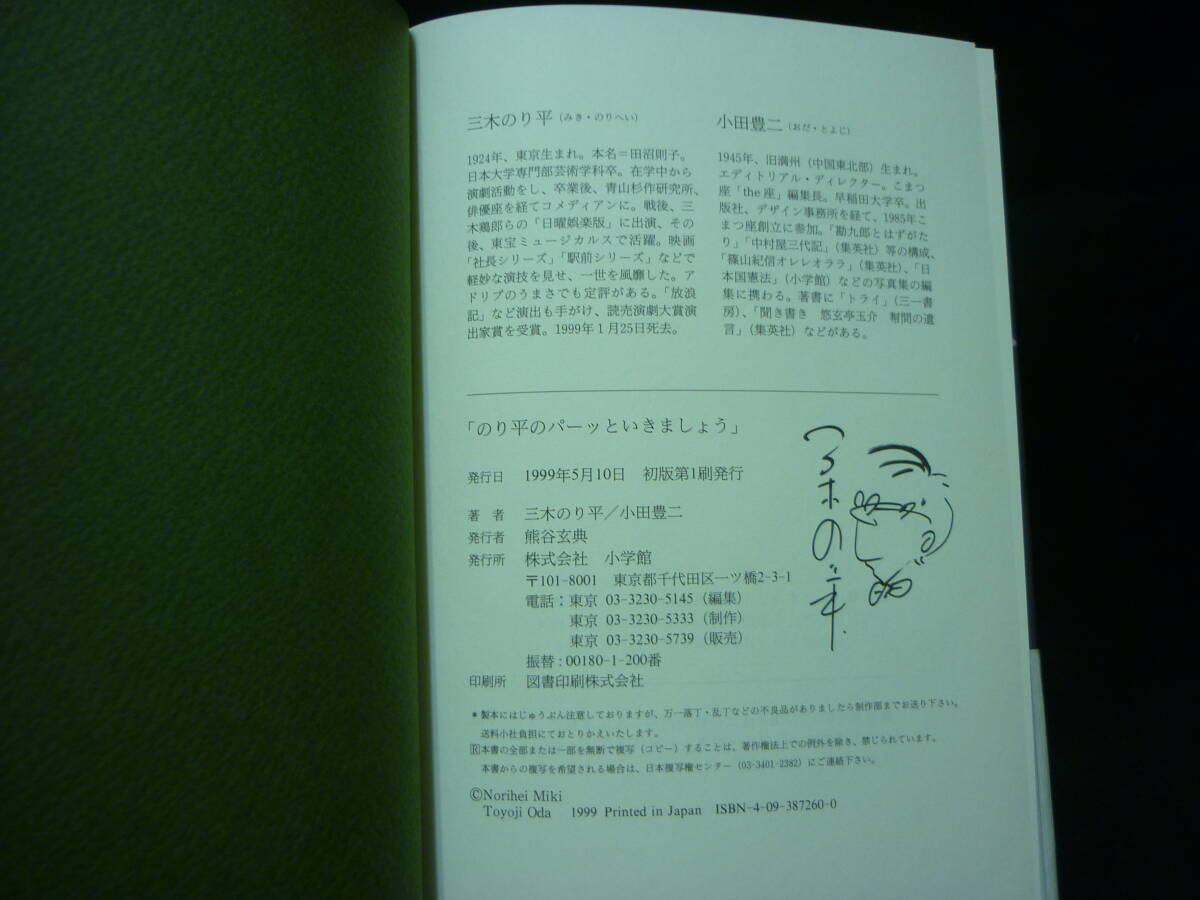 三木のり平（みき・のりへい）
1924年、東京生まれ。本名＝田沼則子。
日本大学専門部芸術学科卒。在学中から
演劇活動をし、卒業後、青山杉作研究所、
俳優座を経てコメディアンに。戦後、三
木鶏郎らの「日曜娯楽版」に出演、その
後、東宝ミュージカルスで活躍。映画
「社長シリーズ」「駅前シリーズ」などで
軽妙な演技を見せ、一世を風靡した。ア
ドリブのうまさでも定評がある。「放浪
記」など演出も手がけ、読売演劇大賞演
出家賞を受賞。1999年1月25日死去。
小田豊二（おだ・とよじ）
1945年、旧満州（中国東北部）生まれ。
エディトリアル・ディレクター。こまつ
座「the座」編集長。早稲田大学卒。出
版社、デザイン事務所を経て、1985年こ
まつ座創立に参加。「勘九郎とはずがた
り」「中村屋三代記」（集英社）等の構成、
「篠山紀信オレレオララ」（集英社）、「日
本国憲法」（小学館）などの写真集の編
集に携わる。著書に「トライ」（三一書
房）、「聞き書き　悠玄亭玉介　幇間の遺
言」（集英社）などがある。
「のり平のパーッといきましょう」
発行日　1999年5月10日　初版第1刷発行
著　者　三木のり平／小田豊二
発行者　熊谷玄典
発行所　株式会社　小学館
〒101-8001　東京都千代田区一ツ橋2-3-1
電話：東京 03-3230-5145（編集）
東京 03-3230-5333（制作）
東京 03-3230-5739（販売）
振替：00180-1-200番
印刷所　図書印刷株式会社
＊製本にはじゅうぶん注意しておりますが、万一落丁・乱丁などの不良品がありましたら制作部までお送り下さい。
送料小社負担にておとりかえいたします。
Ⓡ本書の全部または一部を無断で複写（コピー）することは、著作権法上での例外を除き、禁じられています。
本書からの複写を希望される場合は、日本複写権センター（03-3401-2382）にご連絡下さい。
©Norihei Miki
Toyoji Oda　1999 Printed in Japan　ISBN-4-09-387260-0